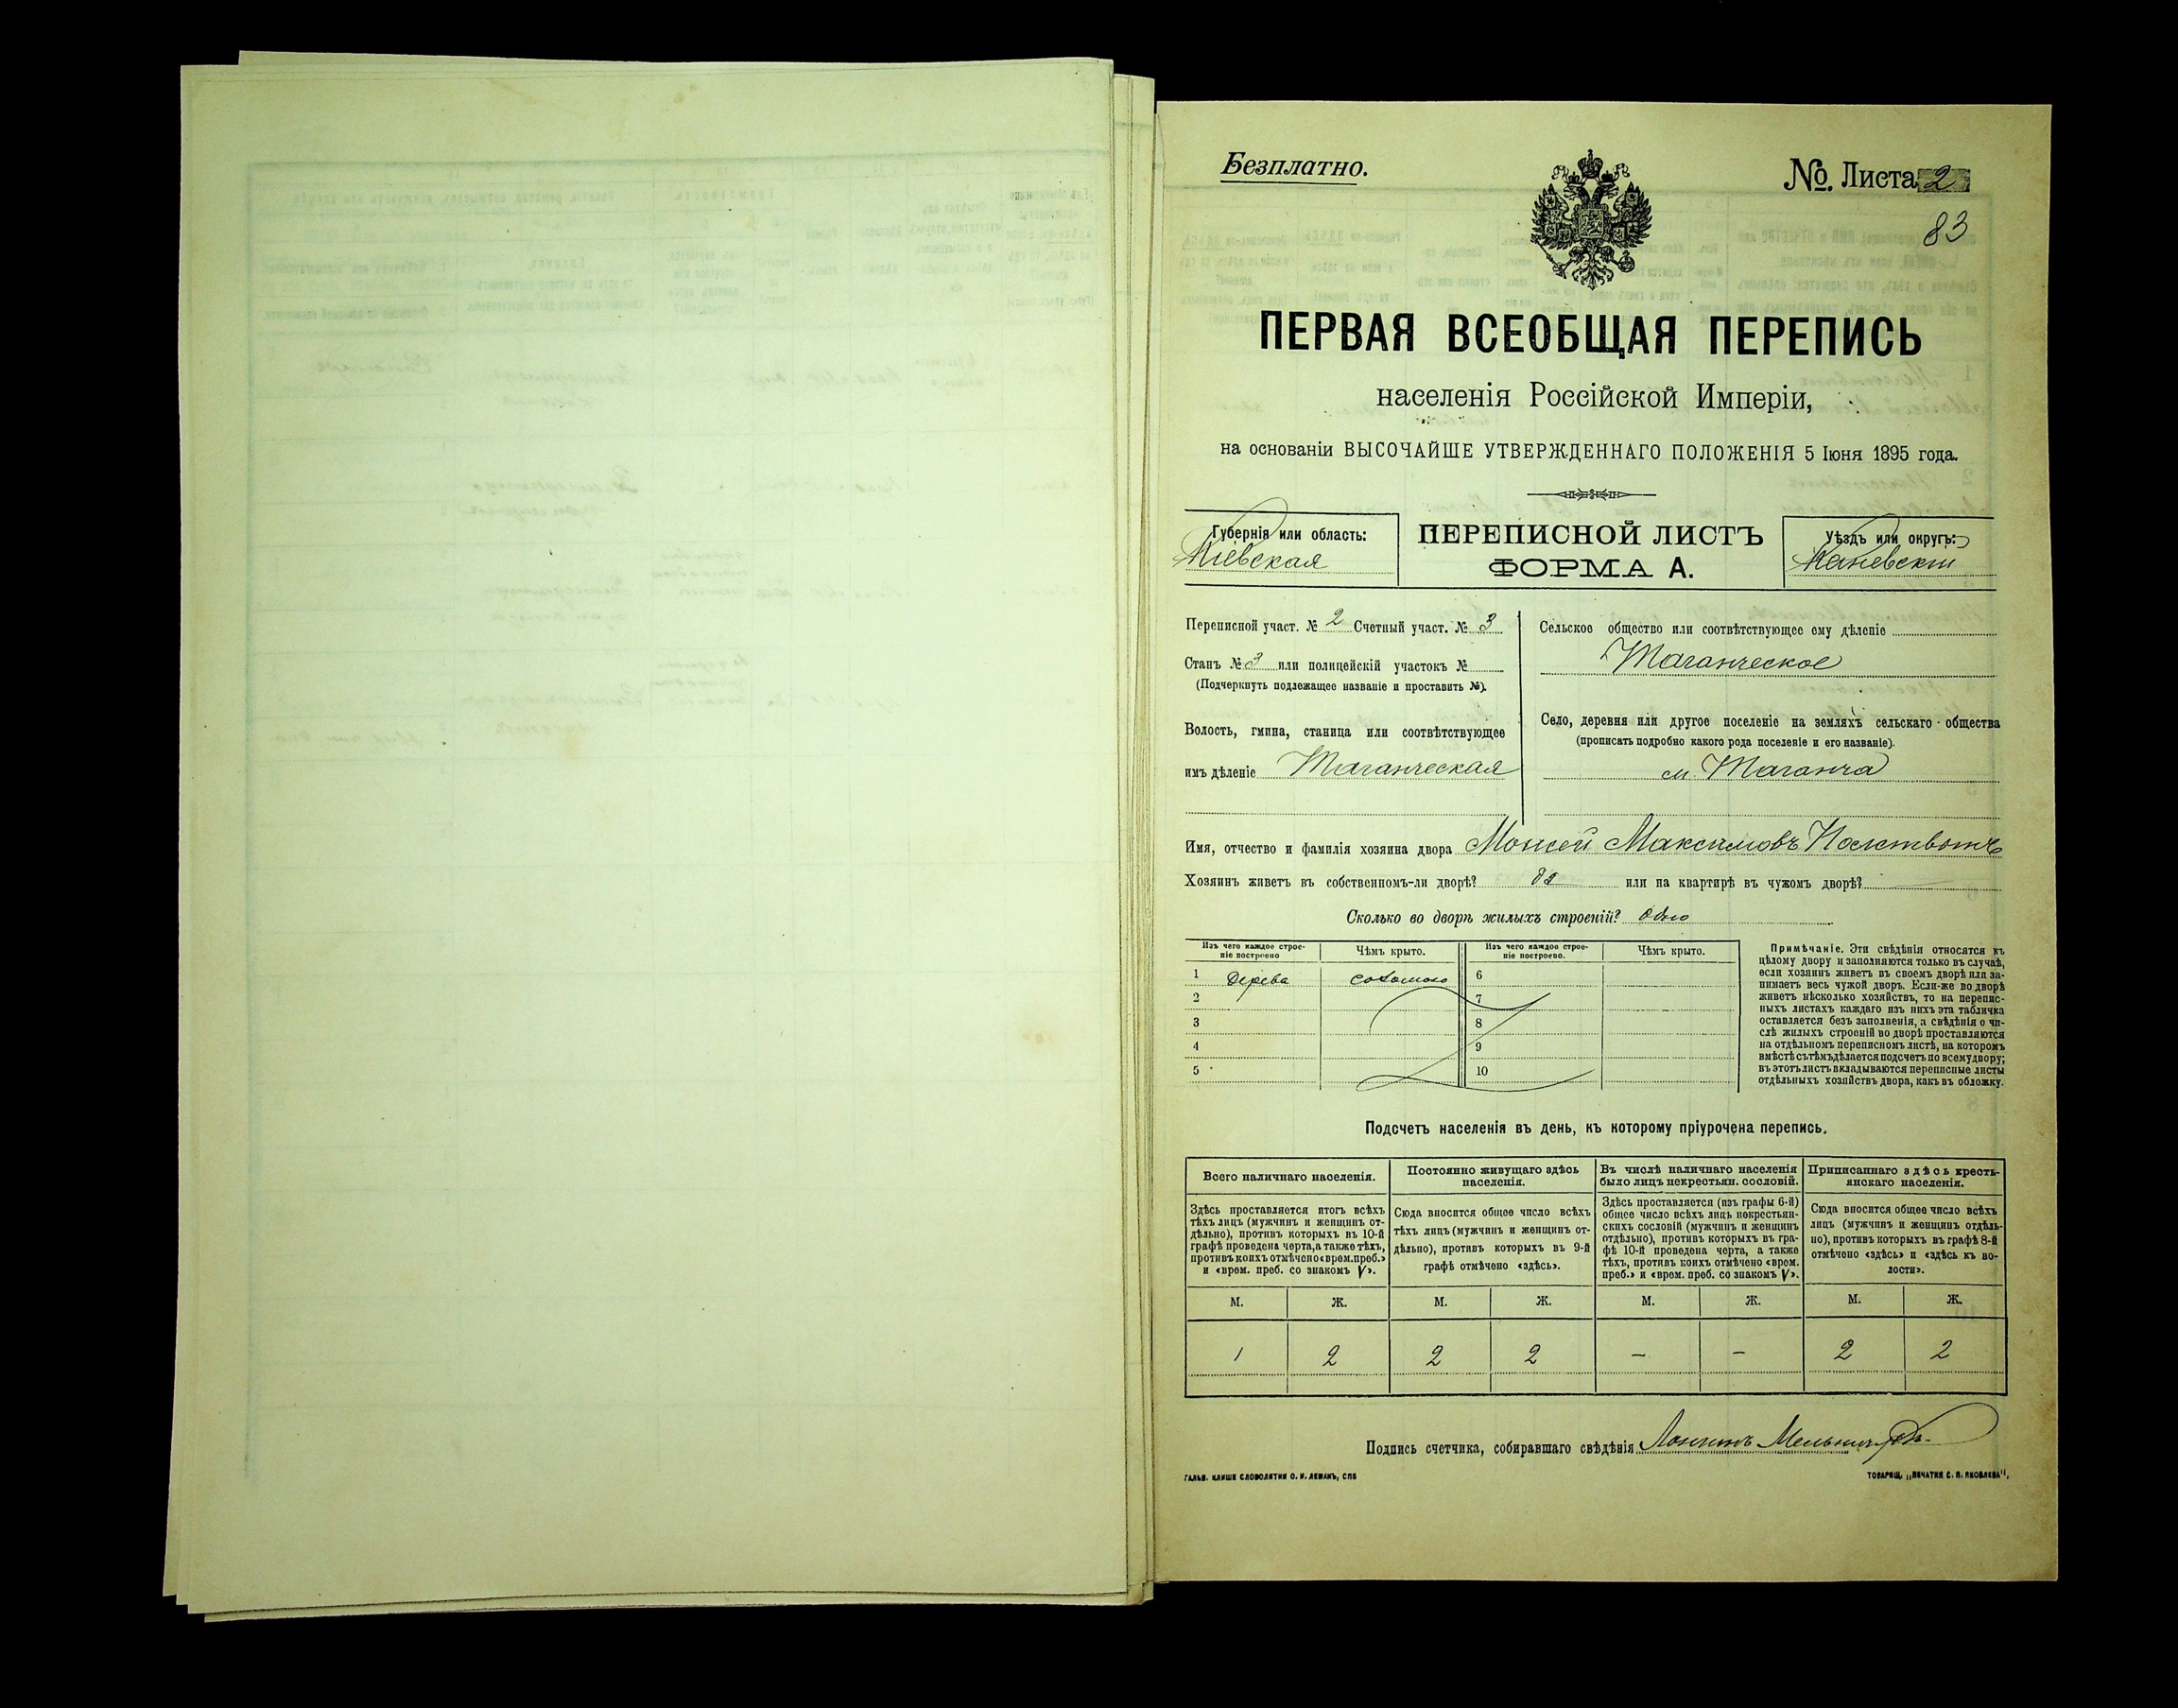 Безплатно.
№. Листа 2
83
ПЕРВАЯ ВСЕОБЩАЯ ПЕРЕПИСЬ
населенія Россійской Имперіи,
на основаніи ВЫСОЧАЙШЕ УТВЕРЖДЕННАГО ПОЛОЖЕНІЯ 5 Іюня 1895 года.
Губернія или область:
Кіевская
ПЕРЕПИСНОЙ ЛИСТЪ
ФОРМА А.
Уѣздъ или округъ:
Каневскій
Переписной участ. № 2 Счетный участ. № 3
Станъ № 3 или полицейскій участокъ №
(Подчеркнуть подлежащее названіе и проставить №).
Волость, гмина, станица или соотвѣтствующее
имъ дѣленіе Таганческая
Сельское общество или соотвѣтствующее ему дѣленіе
Таганческое
Село, деревня или другое поселеніе на земляхъ сельскаго общества
(прописать подробно какого рода поселеніе и его названіе).
м. Таганча
Имя, отчество и фамилія хозяина двора Моисей Максимовъ
Хозяинъ живетъ въ собственномъ-ли дворѣ? да или на квартирѣ въ чужомъ дворѣ? —
Сколько во дворѣ жилыхъ строеній? одно
Изъ чего каждое строе-
ніе построено
Чѣмъ крыто.
Изъ чего каждое строе-
ніе построено.
Чѣмъ крыто.
1 Дерева соломою 6
2 7
3 8
4 9
5 10
Примѣчаніе. Эти свѣдѣнія относятся къ
цѣлому двору и заполняются только въ случаѣ,
если хозяинъ живетъ въ своемъ дворѣ или за-
нимаетъ весь чужой дворъ. Если-же во дворѣ
живетъ нѣсколько хозяйствъ, то на перепис-
ныхъ листахъ каждаго изъ нихъ эта табличка
оставляется безъ заполненія, а свѣдѣнія о чи-
слѣ жилыхъ строеній во дворѣ проставляются
на отдѣльномъ переписномъ листѣ, на которомъ
вмѣстѣ съ тѣмъ дѣлается подсчетъ по всему двору;
въ этотъ листъ вкладываются переписные листы
отдѣльныхъ хозяйствъ двора, какъ въ обложку.
Подсчетъ населенія въ день, къ которому пріурочена перепись.
Всего наличнаго населенія.
Постоянно живущаго здѣсь
населенія.
Въ числѣ наличнаго населенія
было лицъ некрестьян. сословій.
Приписаннаго здѣсь кресть-
янскаго населенія.
Здѣсь проставляется итогъ всѣхъ
тѣхъ лицъ (мужчинъ и женщинъ от-
дѣльно), противъ которыхъ въ 10-й
графѣ проведена черта, а также тѣхъ,
противъ коихъ отмѣчено «врем. преб.»
и «врем. преб. со знакомъ V».
Сюда вносится общее число всѣхъ
тѣхъ лицъ (мужчинъ и женщинъ от-
дѣльно), противъ которыхъ въ 9-й
графѣ отмѣчено «здѣсь».
Здѣсь проставляется (изъ графы 6-й)
общее число всѣхъ лицъ некрестьян-
скихъ сословій (мужчинъ и женщинъ
отдѣльно), противъ которыхъ въ гра-
фѣ 10-й проведена черта, а также
тѣхъ, противъ коихъ отмѣчено «врем.
преб.» и «врем. преб. со знакомъ V».
Сюда вносится общее число всѣхъ
лицъ (мужчинъ и женщинъ отдѣль-
но), противъ которыхъ въ графѣ 8-й
отмѣчено «здѣсь» и «здѣсь къ во-
лости».
М. Ж. М. Ж. М. Ж. М. Ж.
1 2 2 2 — — 2 2
Подпись счетчика, собиравшаго свѣдѣнія Логинъ
ГАЛЬВ. КЛИШЕ СЛОВОЛИТНИ О. И. ЛЕМАНЪ, СПБ
ТОВАРИЩ. „ПЕЧАТНЯ С. П. ЯКОВЛЕВА",